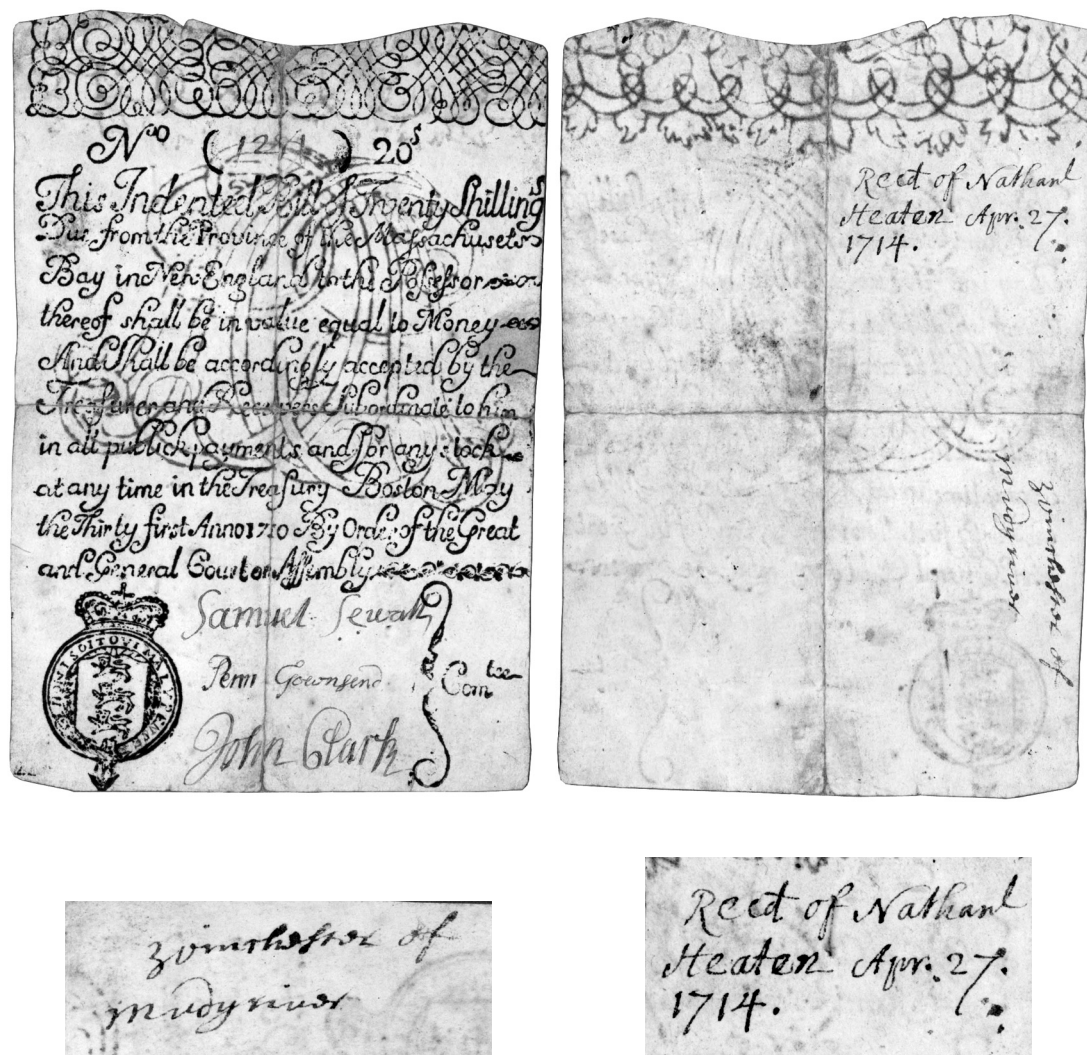 No (12 ) 20s
This Indented Bill of Twenty Shillings
Due from the Province of the Massachusets
Bay in New England to the Possessor
thereof shall be in value equal to Money
And Shall be accordingly accepted by the
Treasurer and Receivers Subordinate to him
in all publick payments and for any stock
at any time in the Treasury Boston May
the Thirty first Anno 1710 By Order of the Great
and General Court or Assembly
Samuel Sewall
Penn Townsend
John Clark
Comtee
HONI SOIT QUI MAL Y PENSE
Recd of Nathanl
Heaten Apr. 27.
1714.
of
mudyriver
of
mudyriver
Recd of Nathanl
Heaten Apr. 27.
1714.